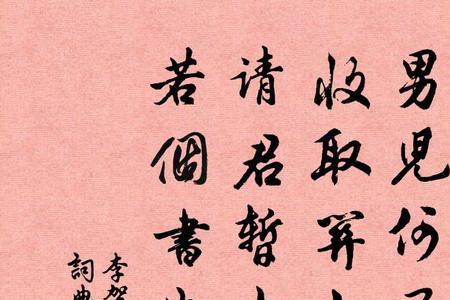 男兒何
收取關
请君暫
若個書
李賀
詞典